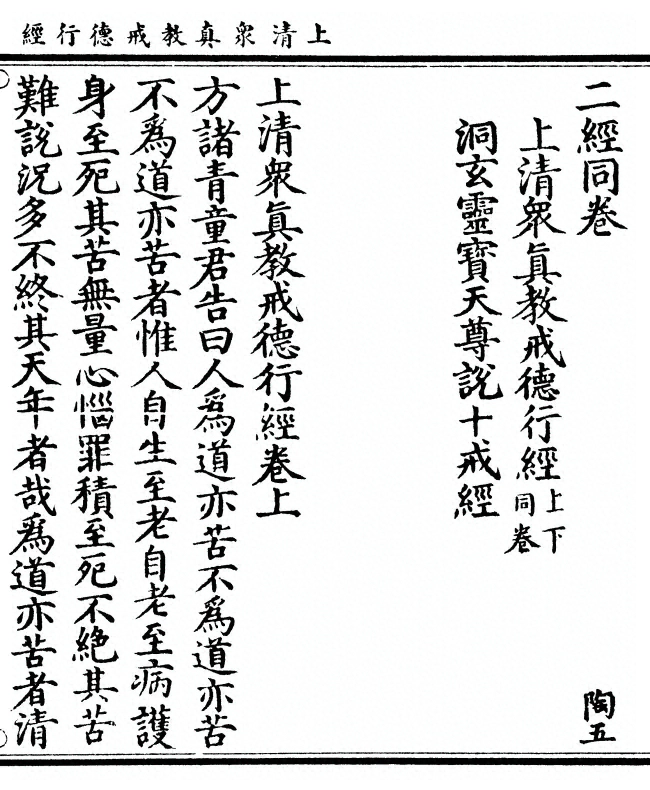 上清衆真教戒德行經
二經同卷
陶五
上清衆真教戒德行經
上下
同卷
洞玄靈寶天尊說十戒經
上清衆真教戒德行經卷上
方諸青童君告曰人爲道亦苦不爲道亦苦
不爲道亦苦者惟人自生至老自老至病護
身至死其苦無量心惱罪積至死不絕其苦
難說況多不終其天年者哉爲道亦苦者清